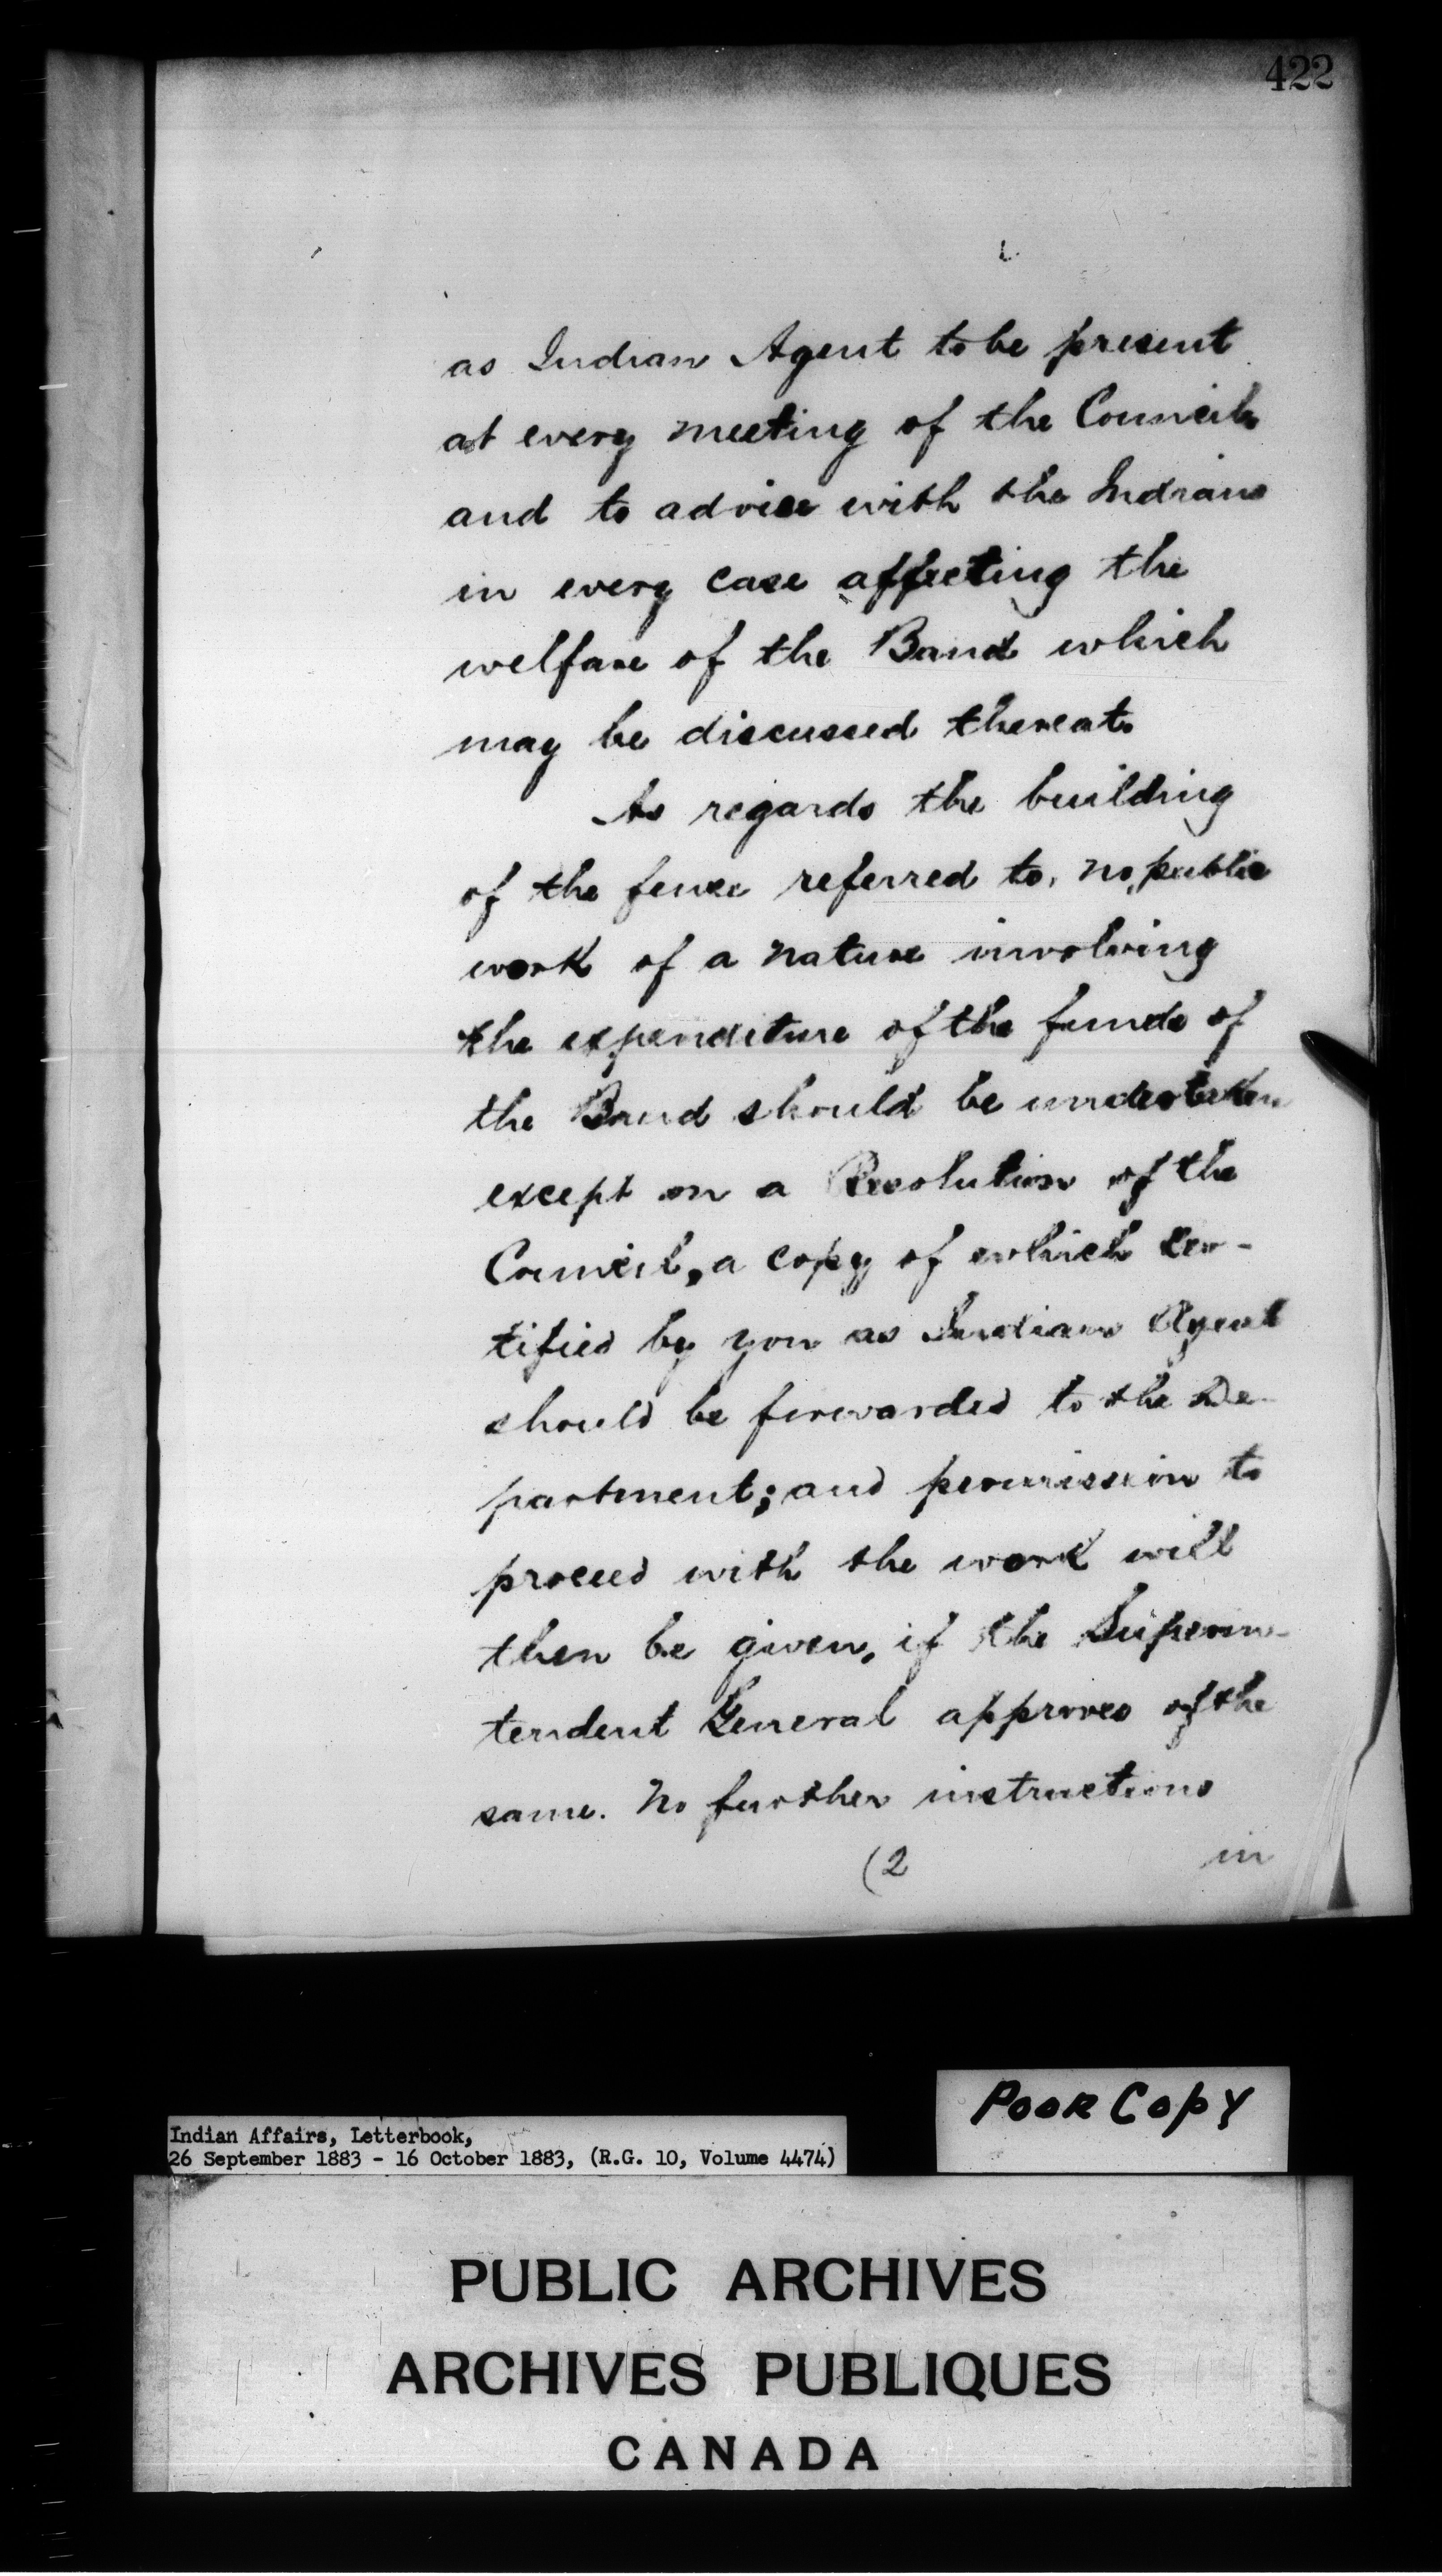 422
as Indian Agent to be present
at every meeting of the Council
and to advise with the Indians
in every case affecting the
welfare of the Band which
may be discussed thereat.
As regards the building
of the fence referred to, no public
work of a nature involving
the expenditure of the funds of
the Band should be undertaken
except on a Resolution of the
Council, a copy of which cer-
tified by you as Indian Agent
should be forwarded to the De-
partment; and permission to
proceed with the work will
then be given, if the Superin-
tendent General approves of the
same. No further instructions
(2 in
POOR COPY
Indian Affairs, Letterbook,
26 September 1883 - 16 October 1883, (R.G. 10, Volume 4474)
PUBLIC ARCHIVES
ARCHIVES PUBLIQUES
CANADA